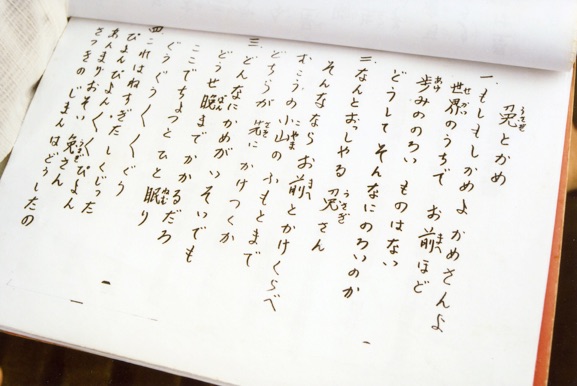 兎とかめ
一、もしもしかめよ かめさんよ
世界のうちで お前ほど
歩みののろい ものはない
どうして そんなにのろいのか
二、なんとおっしゃる 兎さん
そんななら お前とかけくらべ
むこうの小山の ふもとまで
どちらが先に かけつくか
三、どんなにかめが いそいでも
どうせ晩まで かかるだろ
ここでちょっと ひと眠り
ぐうぐう〱〱ぐう
四 これはねすぎた しくじった
ぴょんぴょん〱〱ぴょん
あんまりおそい 兎さん
さっきのじまんは どうしたの